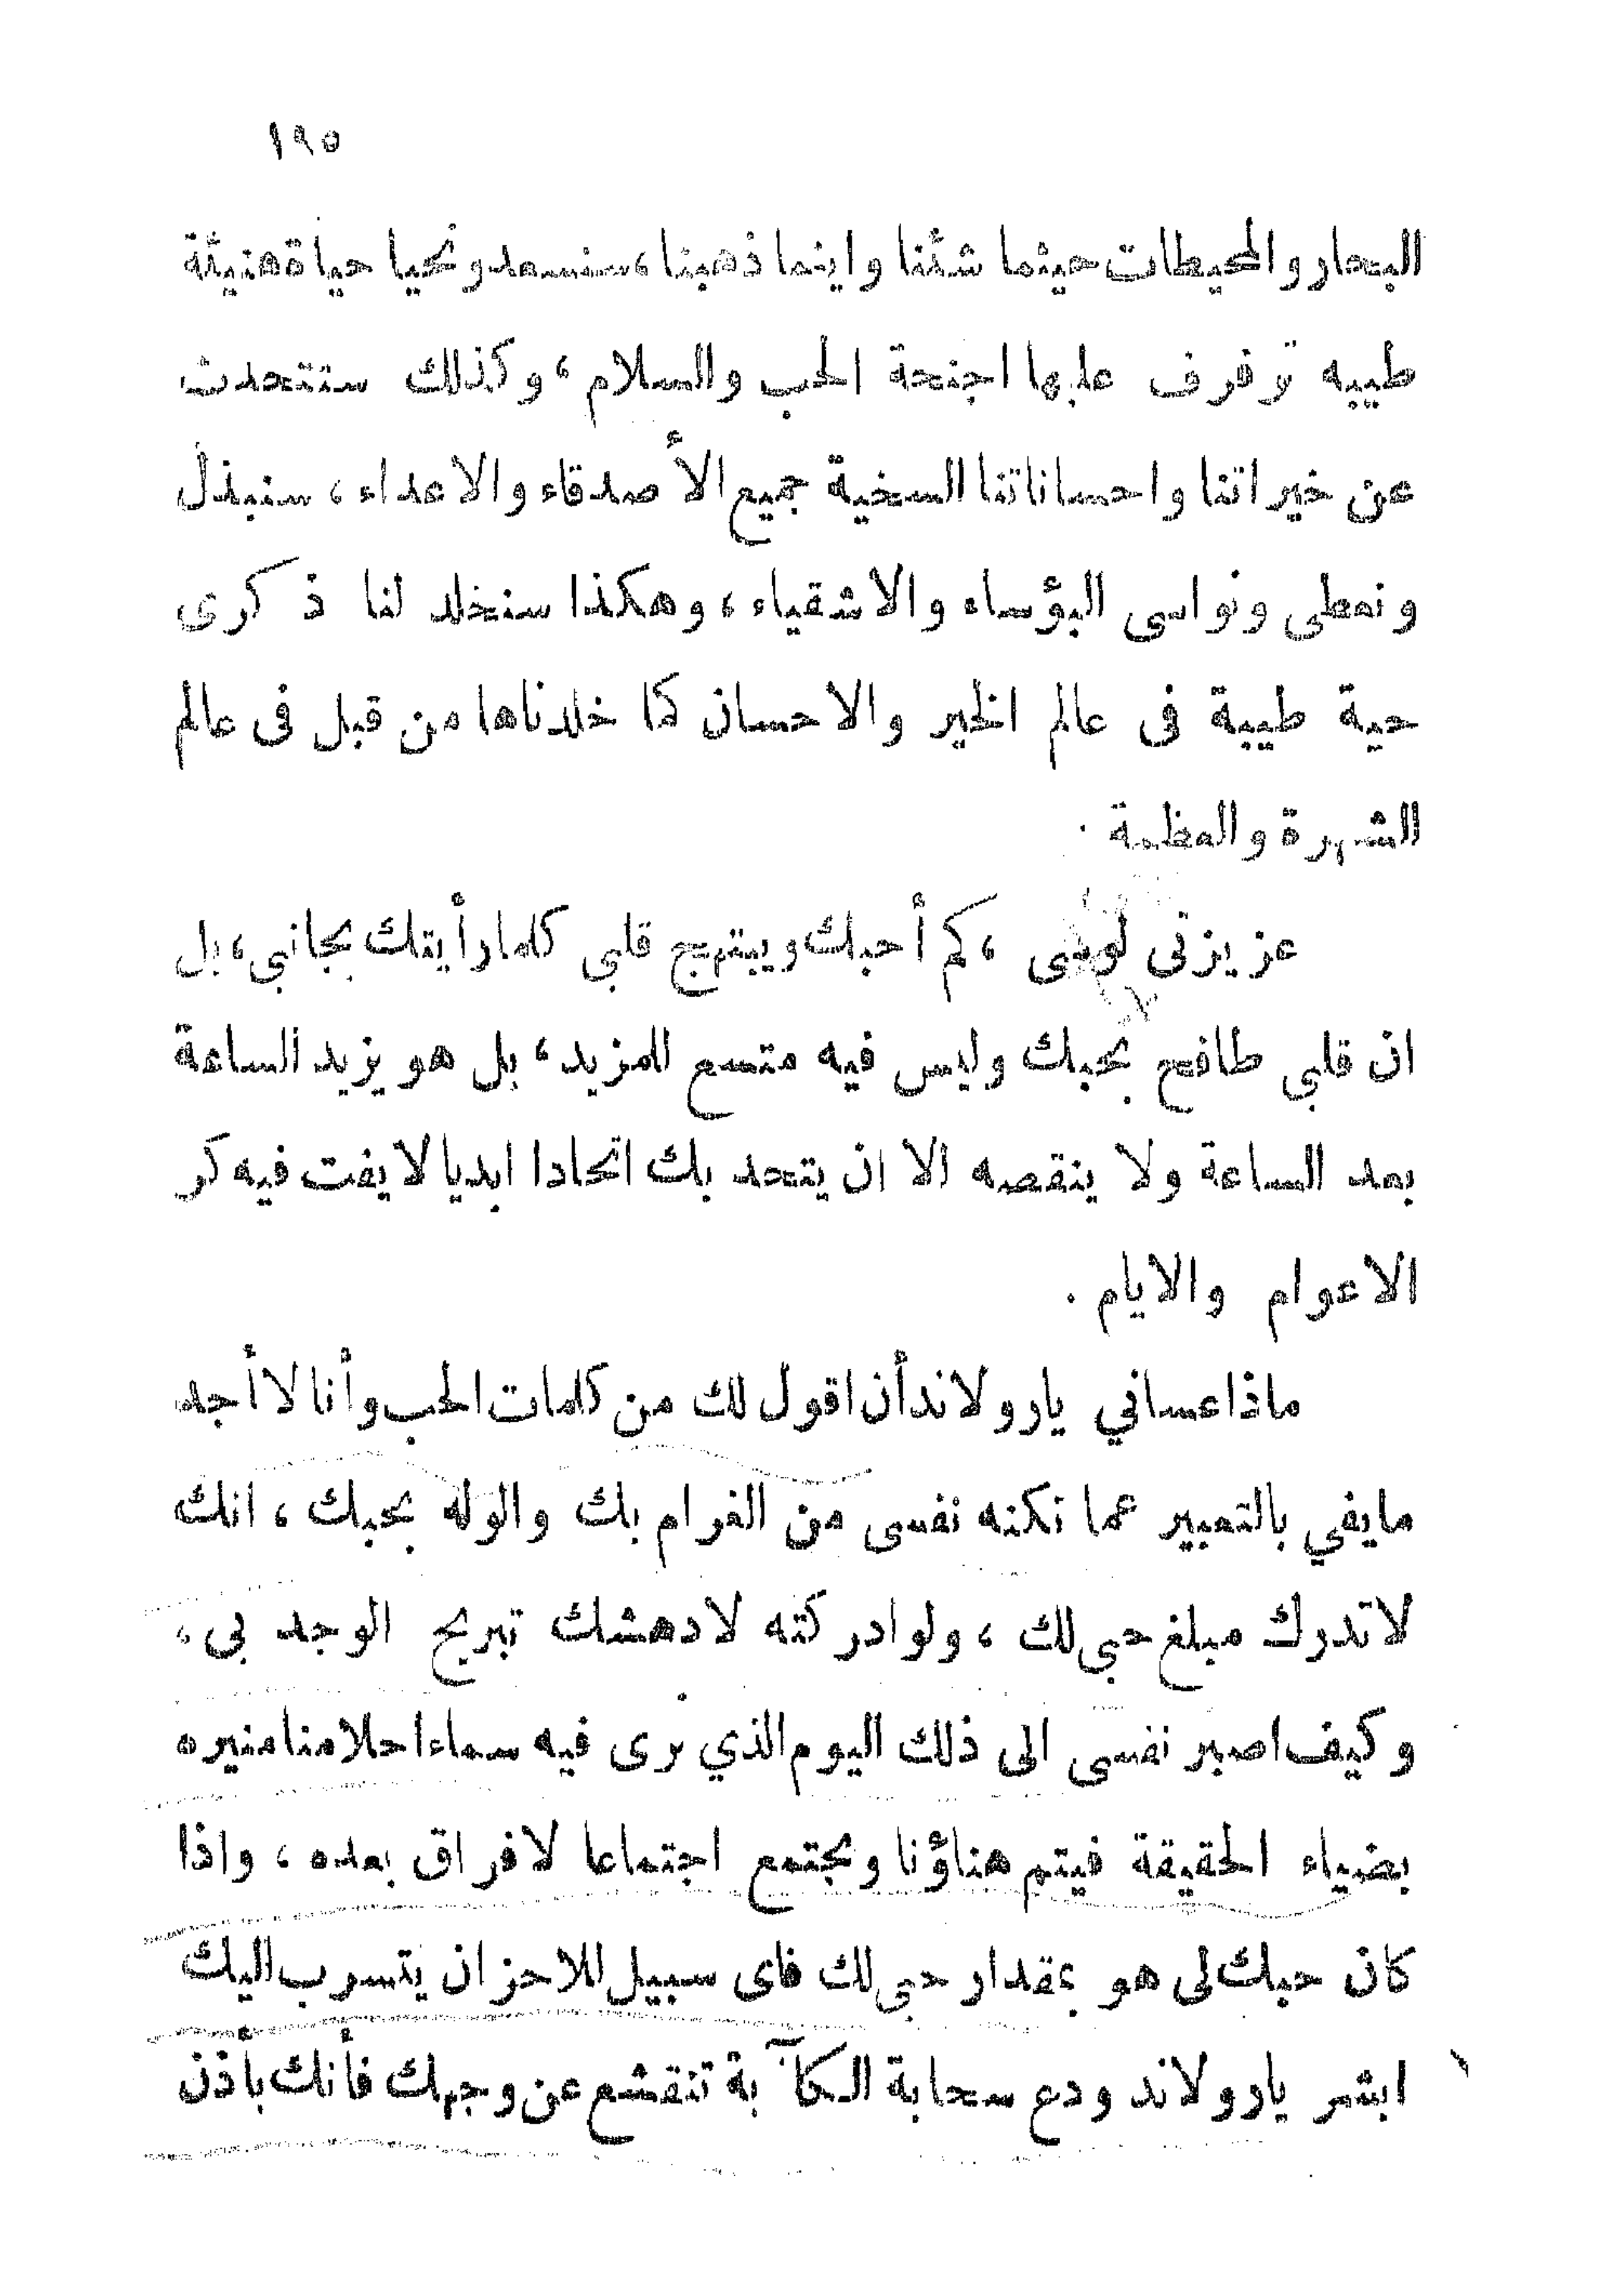 ١٩٥
البحار والمحيطات حيثما شئنا واينما ذهبنا، سنسعد ونحيا حياة هنيئة
طيبه ترفرف عليها اجنحة الحب والسلام، وكذلك ستتحدث
عن خيراتنا واحساناتنا السخية جميع الأصدقاء والاعداء، سنبذل
ونعطى ونواسى البؤساء والاشقياء، وهكذا سنخلد لنا ذكرى
حية طيبة فى عالم الخير والاحسان كما خلدناها من قبل فى عالم
الشهرة والعظمة .
عزيزتى لوسى ، كم أحبك ويبتهج قلبى كلما رأيتك بجانبى، بل
ان قلبي طافح بحبك وليس فيه متسع للمزيد، بل هو يزيد الساعة
بعد الساعة ولا ينقصه الا ان يتحد بك اتحادا ابديا لا يفت فيه كر
الاعوام والايام .
ماذا عساني يارولاند أن اقول لك من كلمات الحب وأنا لا أجد
مايفي بالتعبير عما تكنه نفسى من الغرام بك والوله بحبك ، انك
لاتدرك مبلغ حبى لك ، ولو ادركته لادهشك تبريح الوجد بى ،
وكيف اصبر نفسى الى ذلك اليوم الذي نرى فيه سماء احلامنا منيره
بضياء الحقيقة فيتم هناؤنا ونجتمع اجتماعا لا فراق بعده ، واذا
كان حبك لى هو بمقدار حبى لك فاى سبيل للاحزان يتسرب اليك
ابشر يارولاند ودع سحابة الكآبة تنقشع عن وجهك فأنك بأذن